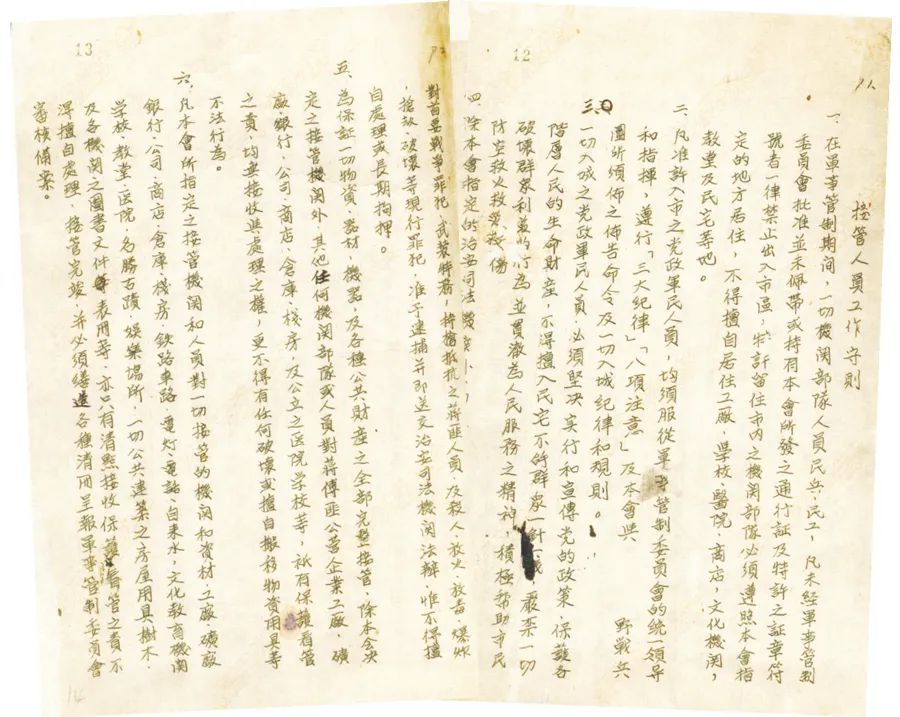 12
接管人員工作守則
一、在軍事管制期间，一切機関部隊人員民兵、民工，凡未経軍事管制
委員會批准並未佩帶或持有本會所發之通行証及特許之証章符
號者一律禁止出入市區，特許留住市内之機関部隊必須遵照本會指
定的地方居住，不得擅自居住工廠、學校、醫院、商店，文化機関，
教堂及民宅等地。
二、凡准許入市之党政軍民人員，均須服從軍事管制委員會的统一領导
和指揮，遵行「三大纪律」「八項注意」及本會與 野戰兵
團所頒佈之佈告命令及一切入城纪律和规则。
三、一切入城之党政軍民人員，必須堅决实行和宣傳党的政策，保護各
階層人民的生命財産，不得擅入民宅不許群衆一針一綫，嚴禁一切
破壊群衆利益的行為並貫澈為人民服务之精神，積極帮助市民
防空救火救災救傷
四、除本會指定的治安司法
13
對首要戰争罪犯，武装特务，持槍抵抗之蒋匪人員，及殺人、放火、放毒、爆炸
、搶劫、破壊等現行罪犯，准予逮捕并即送交治安司法機関法辦，惟不得擅
自處理或長期拘押。
五、為保証一切物資、器材、機器，及各種公共財産之全部完整接管，除本会决
定之接管機関外，其他任何機関部隊或人員對蒋傅匪公营企業工廠，礦
廠銀行、公司、商店、倉庫、棧房、及公立之医院学校等，祇有保護看管
之責，均無接收與處理之權，更不得有任何破壊或擅自搬移物資用具等
不法行為。
六、凡本會所指定之接管機関和人員對一切接管的機関和資材，工廠礦廠
銀行、公司、商店、倉庫棧房、鉄路車路、電灯、電話、自来水，文化教育機関
学校、教堂、医院、名勝古蹟、娯樂場所，一切公共建築之房屋用具樹木、
及各機関之圖書文件表册等，亦只有清點接收保護看管之責不
得擅自處理，接管完竣，并必須繕造各種清册呈報軍事管制委員會
審核備案。